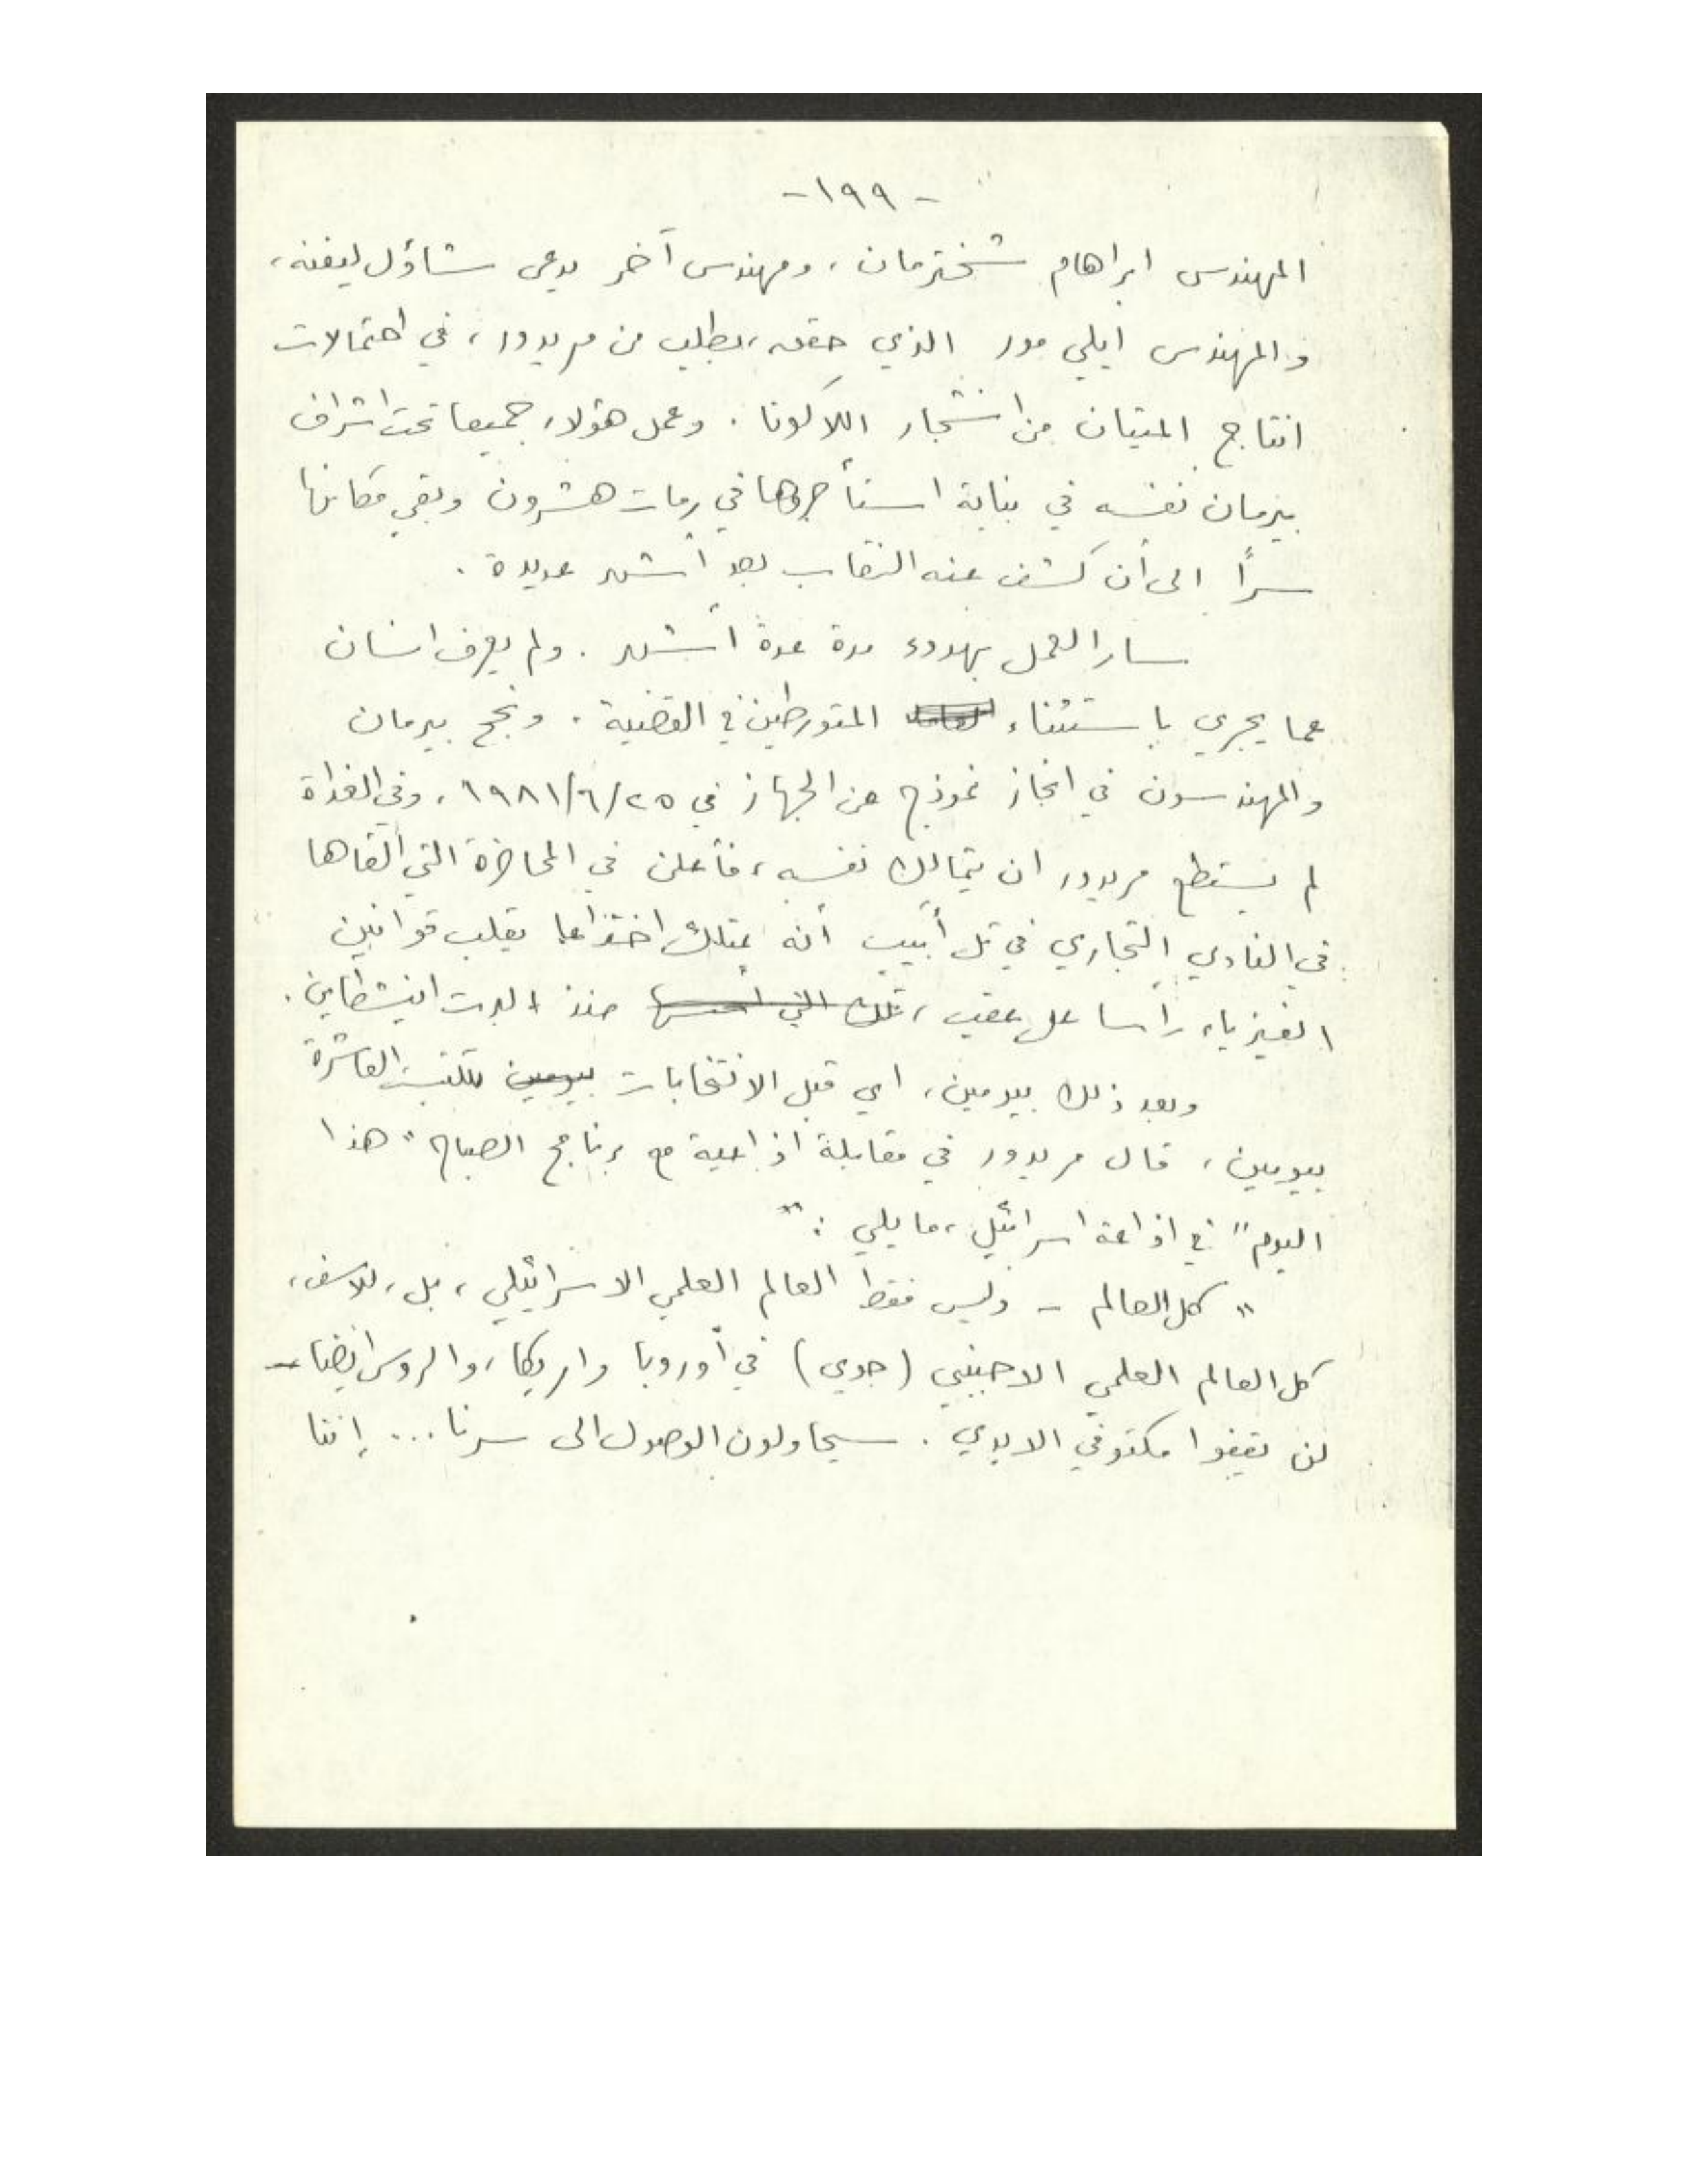 - ١٩٩ -
المهندس ابراهام شخترمان، ومهندس آخر يدعى شاؤل ليفنه،
والمهندس ايلي مور الذي حقق، بطلب من مريدور، في احتمالات
انتاج الميتان من اشجار اللاكونا. وعمل هؤلاء جميعا تحت اشراف
بيرمان نفسه في بناية استأجروها في رمات هشرون وبقي مكانها
سراً الى أن كشف عنه النقاب بعد أشهر عديدة.
سار العمل بهدوء مدة عدة أشهر. ولم يعرف انسان
عما يجري باستثناء المتورطين في القضية. ونجح بيرمان
والمهندسون في انجاز نموذج عن الجهاز في ٢٥/٦/١٩٨١، وفي الغداة
لم يستطع مريدور ان يتمالك نفسه، فأعلن في المحاضرة التي ألقاها
في النادي التجاري في تل أبيب أنه يمتلك اختراعا يقلب قوانين
الفيزياء رأسا على عقب، تلك التي منذ البرت اينشطاين.
وبعد ذلك بيومين، اي قبل الانتخابات بيومين للكنيست العاشرة
بيومين، قال مريدور في مقابلة اذاعية مع برنامج الصباح "هذا
اليوم" في اذاعة اسرائيل، ما يلي:"
"كل العالم - وليس فقط العالم العلمي الاسرائيلي، بل، للاسف،
كل العالم العلمي الاجنبي (جوي) في أوروبا وامريكا، والروس ايضا -
لن يقفوا مكتوفي الايدي. سيحاولون الوصول الى سرنا... إننا